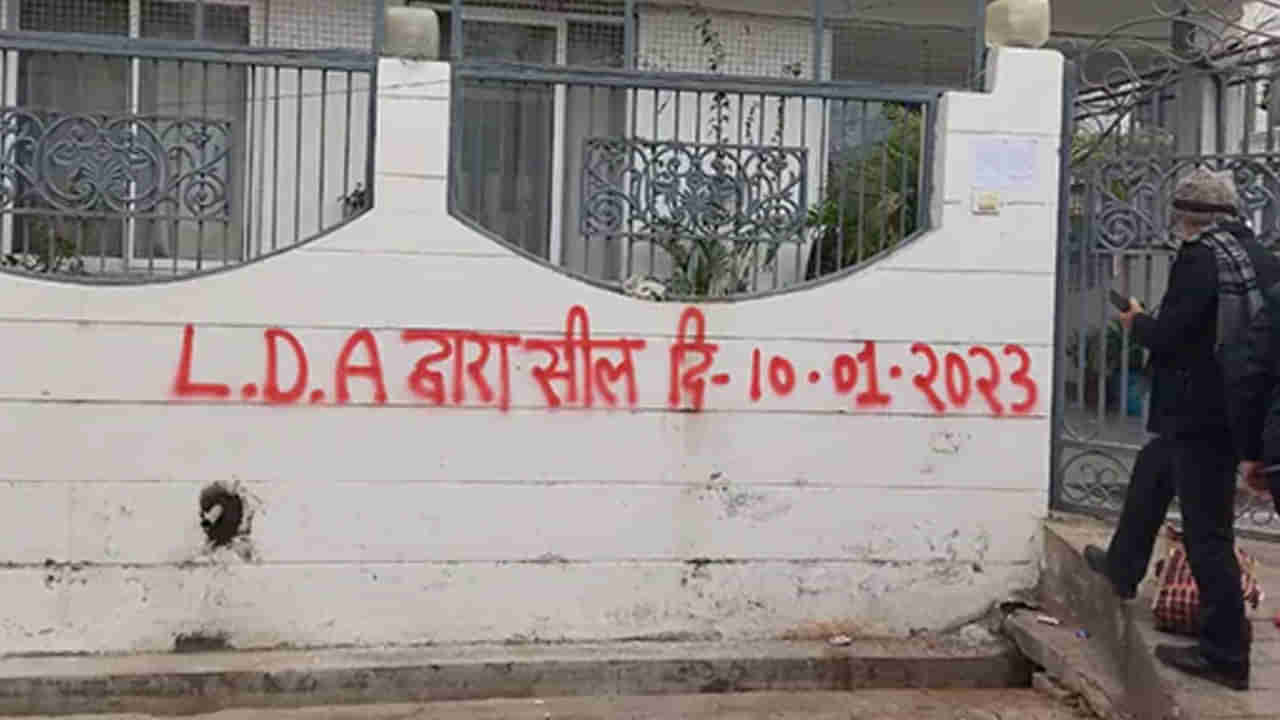 L.D.A द्वारा सील दि- 10.01.2023